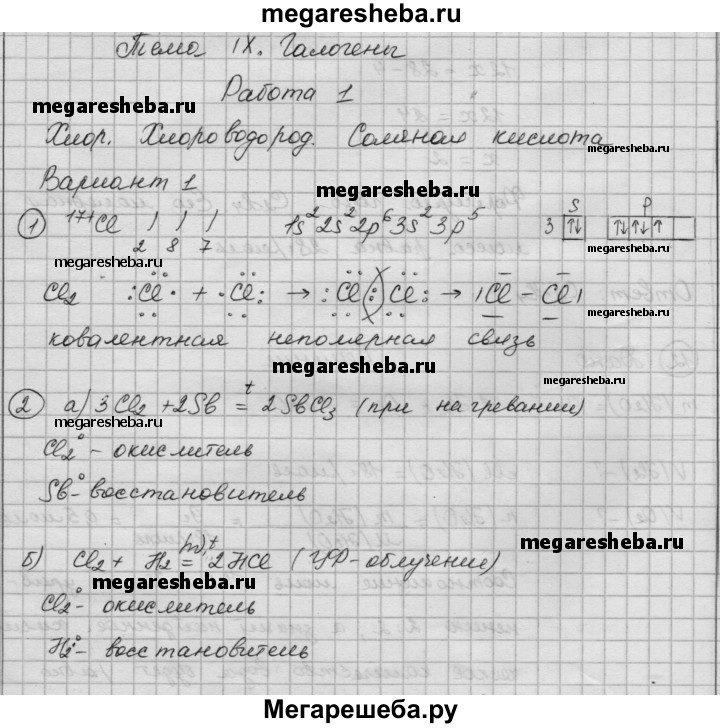 megaresheba.ru
Тема IX. Галогены
Работа 1
megaresheba.ru
Хлор. Хлороводород. Соляная кислота
megaresheba.ru
Вариант 1
megaresheba.ru
1 17+Cl ) ) ) 1s² 2s² 2p⁶ 3s² 3p⁵ 3 s ↑↓ p ↑↓ ↑↓ ↑
2 8 7
megaresheba.ru
Cl₂ :Cl· + ·Cl: → :Cl(:)Cl: → |Cl - Cl|
megaresheba.ru
ковалентная неполярная связь
megaresheba.ru
2 а) 3Cl₂ + 2Sb =ᵗ 2SbCl₃ (при нагревании)
megaresheba.ru
Cl₂⁰ - окислитель
Sb - восстановитель
megaresheba.ru
б) Cl₂ + H₂ = hν, t 2HCl (УФ-облучение)
megaresheba.ru
Cl₂⁰ - окислитель
H₂⁰ - восстановитель
Мегарешеба.ру